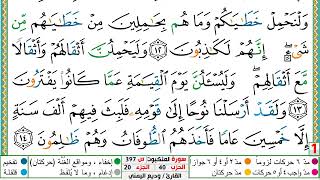 وَلْنَحْمِلْ خَطَٰيَٰكُمْ وَمَا هُم بِحَٰمِلِينَ مِنْ خَطَٰيَٰهُم مِّن
شَىْءٍ ۖ إِنَّهُمْ لَكَٰذِبُونَ ١٢ وَلَيَحْمِلُنَّ أَثْقَالَهُمْ وَأَثْقَالًا
مَّعَ أَثْقَالِهِمْ ۖ وَلَيُسْـَٔلُنَّ يَوْمَ ٱلْقِيَٰمَةِ عَمَّا كَانُوا۟ يَفْتَرُونَ
١٣ وَلَقَدْ أَرْسَلْنَا نُوحًا إِلَىٰ قَوْمِهِۦ فَلَبِثَ فِيهِمْ أَلْفَ سَنَةٍ
إِلَّا خَمْسِينَ عَامًا فَأَخَذَهُمُ ٱلطُّوفَانُ وَهُمْ ظَٰلِمُونَ ١٤
1
تفخيم
قلقلة
إخفاء، ومواقع الغُنَّة (حركتان)
إدغام، وما لا يُلفظ
سورة العنكبوت ص 397
الحزب 40 الجزء 20
مدّ ٦ حركات لزوماً
مدّ ٢ أو ٤ أو ٦ جوازاً
مدّ حركتان